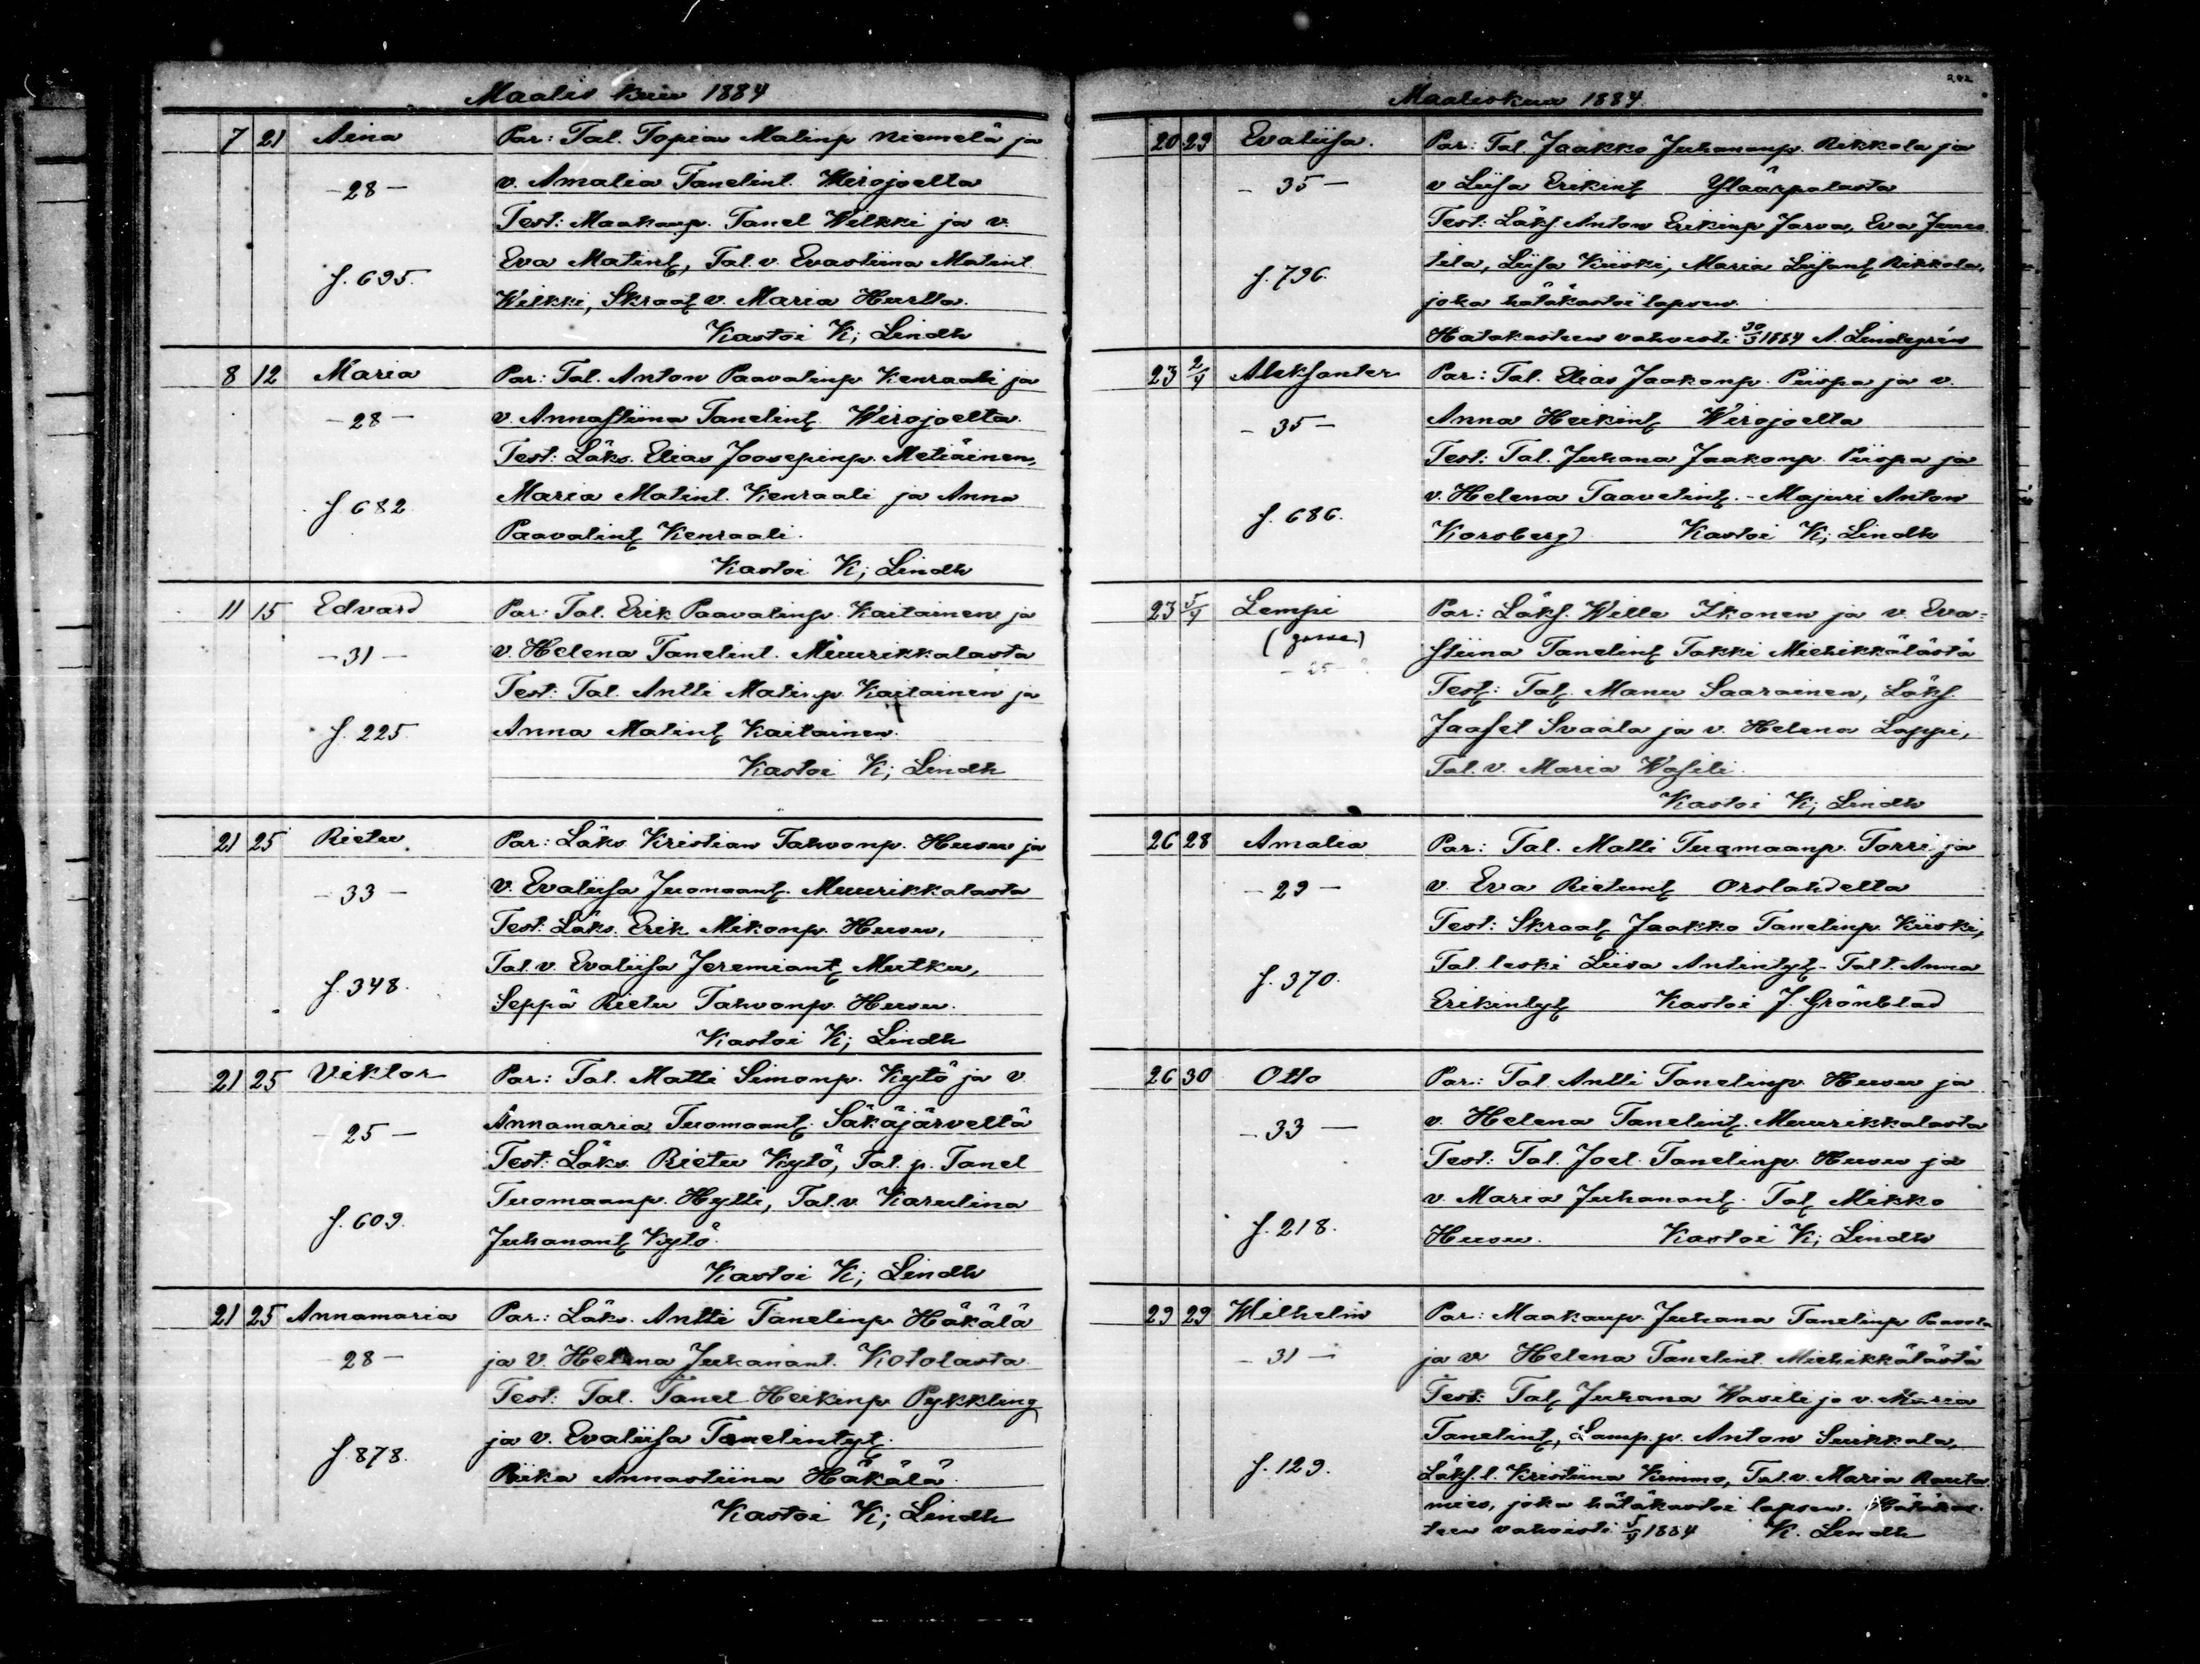 Maalis kuu 1884
7 21 Aina Par: Tal. Topias Matinp Niemelä ja
-28- v. Amalia Tanelint. Wirojoelta
Test: Maakaup. Tanel Wilkki ja v.
f. 695. Eva Matint, Tal. v. Evastiina Matint
Wilkki, Skraat v. Maria Hurtta.
Kastoi K; Lindh
8 12 Maria Par: Tal. Anton Paavalinp Kenraali ja
-28- v. Annastiina Tanelint. Wirojoelta.
Test: Läks. Elias Joosepinp. Metiäinen,
f 682 Maria Matint. Kenraali ja Anna
Paavalint Kenraali.
Kastoi K; Lindh
11 15 Edvard Par: Tal. Erik Paavalinp. Kaitainen ja
-31- v. Helena Tanelint. Muurikkalasta
Test: Tal. Antti Matinp. Kaitainen ja
f. 225 Anna Matint Kaitainen.
Kastoi K; Lindh
21 25 Rietu Par: Läks. Kristian Tahvonp. Huusu ja
-33- v. Evaliisa Juonaant. Muurikkalasta
Test: Läks. Erik Mikonp. Huusu,
f. 348. Tal. v. Evaliisa Jeremiant Mutku,
Seppä Rietu Tahvonp. Huusu.
Kastoi K; Lindh
21 25 Viktor Par: Tal. Matti Simonp. Kytö ja v.
-25- Annamaria Tuomaant. Säkäjärveltä
Test: Läks. Rietu Kytö, Tal. p. Tanel
f. 609. Tuomaanp. Hytti, Tal. v. Karulina
Juhanant Kytö.
Kastoi K; Lindh
21 25 Annamaria Par: Läks. Antti Tanelinp. Häkälä
-28- ja v. Helena Juhanant. Kotolasta
Test: Tal. Tanel Heikinp. Pykkling
f. 878. ja v. Evaliisa Tanelintyt.
Piika Annastiina Häkälä.
Kastoi K; Lindh
Maaliskuu 1884 202
20 29 Evaliisa. Par: Tal. Jaakko Juhananp. Rikkola ja
-35- v Liisa Erikint Yläärpalasta
Test: Läks. Anton Erikinp Jarva, Eva
f. 796. tila, Liisa Kiiski, Maria Liisant Rikkola,
joka hätäkastoi lapsen.
Hätäkasteen vahvisti 30/3 1884 A. Lindegrén
23 2/4 Aleksanter Par: Tal. Elias Jaakonp. Piispa ja v.
-35- Anna Heikint Wirojoelta
Test: Tal. Juhana Jaakonp. Piispa ja
f. 686. v. Helena Taavetint. - Majuri Anton
Korsberg Kastoi K; Lindh
23 5/4 Lempi Par: Läks. Wille Ikonen ja v. Eva=
(gosse) stiina Tanelint Takki Miehikkälästä
-25-? Test: Tal. Manu Saarainen, Läks.
Jaafet Svaala ja v. Helena Lappi,
Tal. v. Maria Wasili.
Kastoi K; Lindh
26 28 Amalia Par: Tal. Matti Tuomaanp. Torri ja
-29- v. Eva Rietunt Orslahdelta
Test: Skraat Jaakko Tanelinp. Kiiski,
f. 370. Tal. leski Liisa Antintyt - Tal t. Anna
Erikintyt Kastoi J. Grönblad
26 30 Otto Par: Tal Antti Tanelinp Huusu ja
-33- v. Helena Tanelint. Muurikkalasta
Test: Tal. Joel Tanelinp Huusu ja
f. 218. v. Maria Juhanant. Tal Mikko
Huusu. Kastoi K; Lindh
29 29 Wilhelm Par: Maakaup. Juhana Tanelinp
-31- ja v Helena Tanelint Miehikkälästä
Test: Tal Juhana Wasili ja v. Maria
Tanelint, Lamp. p. Anton Suikkala,
f. 129. Läks. l. Kristiina Kimmo, Tal. v. Maria Rauta
mies, joka hätäkastoi lapsen. Hätäkas-
teen vahvisti 5/4 1884 K. Lindh